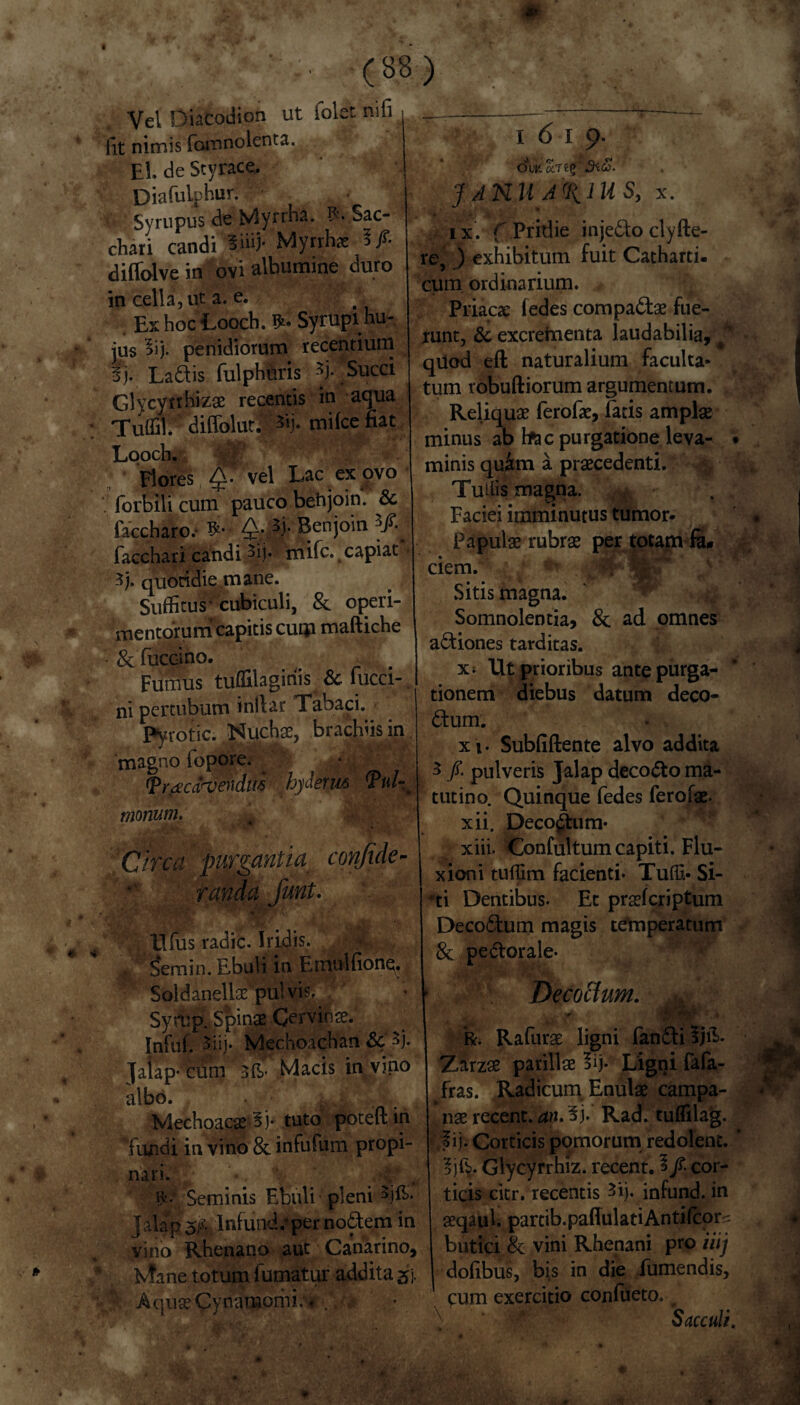 (88)
Vel Diacodion ut ſolet niſi
ſit nimis ſomnolenta.
El. de Styrace.
Diaſulphur.
Syrupus de Myrrha. ℞. Sac-
chari candi ℥iiij. Myrrhæ ℥ß.
diſſolve in ovi albumine duro
in cella, ut a. e.
Ex hoc Looch. ℞. Syrupi hu-
jus ℥ij. penidiorum recentium
℥j. Lactis ſulphuris ʒj. Succi
Glycyrrhizæ recentis in aqua
Tuſſil. diſſolut. ʒij. miſce fiat
Looch.
Flores 🜍. vel Lac ex ovo
ſorbili cum pauco behjoin. &
ſaccharo. ℞. 🜍. ʒj. Benjoin ʒß.
ſacchari candi ʒij. miſc. capiat
ʒj. quotidie mane.
Suffitus cubiculi, & operi-
mentorum capitis cum maſtiche
& ſuccino.
Fumus tuſſilaginis & ſucci-
ni per tubum inſtar Tabaci.
Pyrotic. Nuchæ, brachiis in
magno ſopore.
Præcavendus hyderus Pul-
monum.
Circa purgantia conſide-
randa ſunt.
Uſus radic. Iridis.
Semin. Ebuli in Emulſione.
Soldanellæ pulvis.
Syrup. Spinæ Cervinæ.
Infuſ. ʒiij. Mechoachan & ʒj.
Jalap. cum ʒß. Macis in vino
albo.
Mechoacæ ℥j. tuto poteſt in
fundi in vino & infuſum propi-
nari.
℞. Seminis Ebuli pleni ʒjß.
Jalap ʒß. Infund. per noctem in
vino Rhenano aut Canarino,
Mane totum ſumatur addita ʒj.
Aquæ Cynamomi.
1619.
JANUARIUS, x.
ix. (Pridie injecto clyſte-
re,) exhibitum fuit Catharti-
cum ordinarium.
Priacæ ſedes compactæ fue-
runt, & excrementa laudabilia,
quod eſt naturalium faculta-
tum robuſtiorum argumentum.
Reliquæ ſeroſæ, ſatis amplæ
minus ab hac purgatione leva-
minis quàm à præcedenti.
Tuſſis magna.
Faciei imminutus tumor.
Papulæ rubræ per totam fa-
ciem.
Sitis magna.
Somnolentia, & ad omnes
actiones tarditas.
x. Ut prioribus ante purga-
tionem diebus datum deco-
ctum.
xi. Subſiſtente alvo addita
ʒ ß. pulveris Jalap decocto ma-
tutino. Quinque ſedes ſeroſæ.
xii. Decoctum.
xiii. Conſultum capiti. Flu-
xioni tuſſim facienti. Tuſſi. Si-
ti Dentibus. Et præſcriptum
Decoctum magis temperatum
& pectorale.
Decoctum.
℞. Raſuræ ligni ſancti ℥jß.
Zarzæ parillæ ℥ij. Ligni ſaſa-
fras. Radicum Enulæ campa-
næ recent. an. ℥j. Rad. tuſſilag.
℥ij. Corticis pomorum redolent.
℥jß. Glycyrrhiz. recent. ℥ß. cor-
ticis citr. recentis ʒij. infund. in
æqaul. partib. paſſulati Antiſcor-
butici & vini Rhenani pro iiij
doſibus, bis in die ſumendis,
cum exercitio conſueto.
Sacculi.